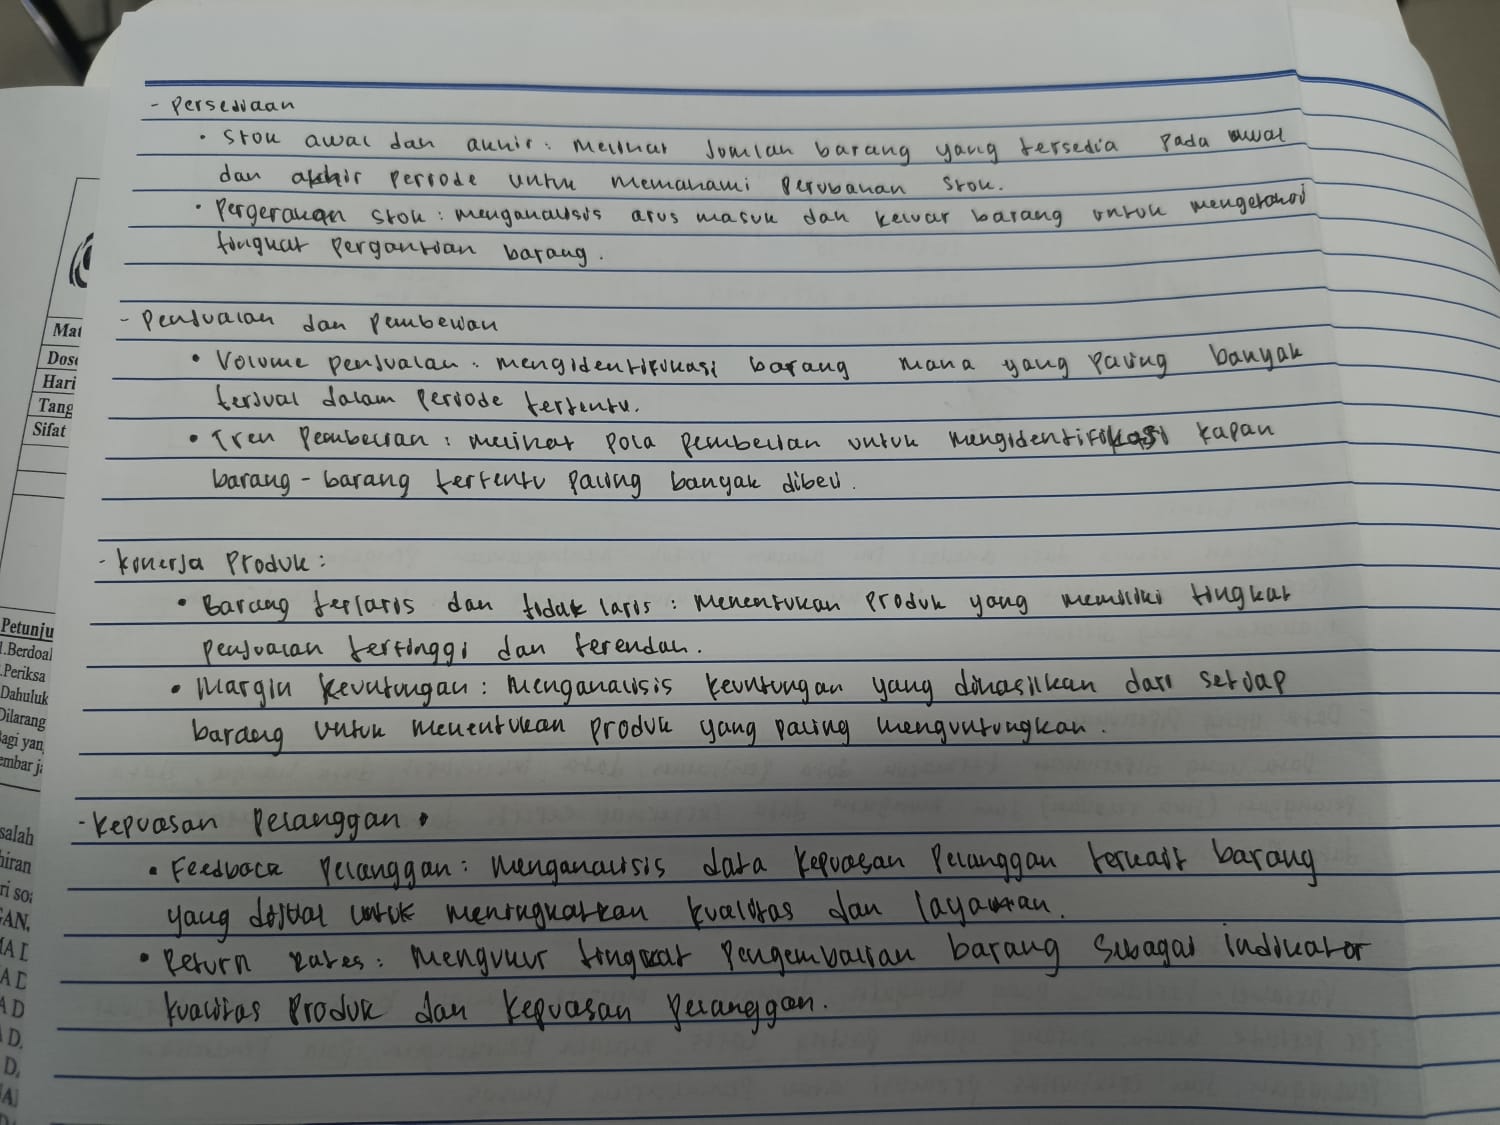 - Persediaan
• Stok awal dan akhir : melihat jumlah barang yang tersedia pada awal
dan akhir periode untuk memahami perubahan stok.
• Pergerakan stok : menganalisis arus masuk dan keluar barang untuk mengetahui
tingkat pergantian barang.
- Penjualan dan pembelian
• Volume penjualan : mengidentifikasi barang mana yang paling banyak
terjual dalam periode tertentu.
• Tren pembelian : melihat pola pembelian untuk mengidentifikasi kapan
barang - barang tertentu paling banyak dibeli.
- kinerja Produk :
• Barang terlaris dan tidak laris : menentukan produk yang memiliki tingkat
penjualan tertinggi dan terendah.
• Margin keuntungan : menganalisis keuntungan yang dihasilkan dari setiap
barang untuk menentukan produk yang paling menguntungkan.
- kepuasan pelanggan •
• Feedback pelanggan : menganalisis data kepuasan pelanggan terkait barang
yang dijual untuk meningkatkan kualitas dan layanan.
• Return rates : mengukur tingkat pengembalian barang sebagai indikator
kualitas produk dan kepuasan pelanggan.
Mat
Dose
Hari
Tang
Sifat
Petunju
1.Berdoal
.Periksa
Dahuluk
Dilarang
agi yan
embar ja
salah
hiran
ri so
GAN,